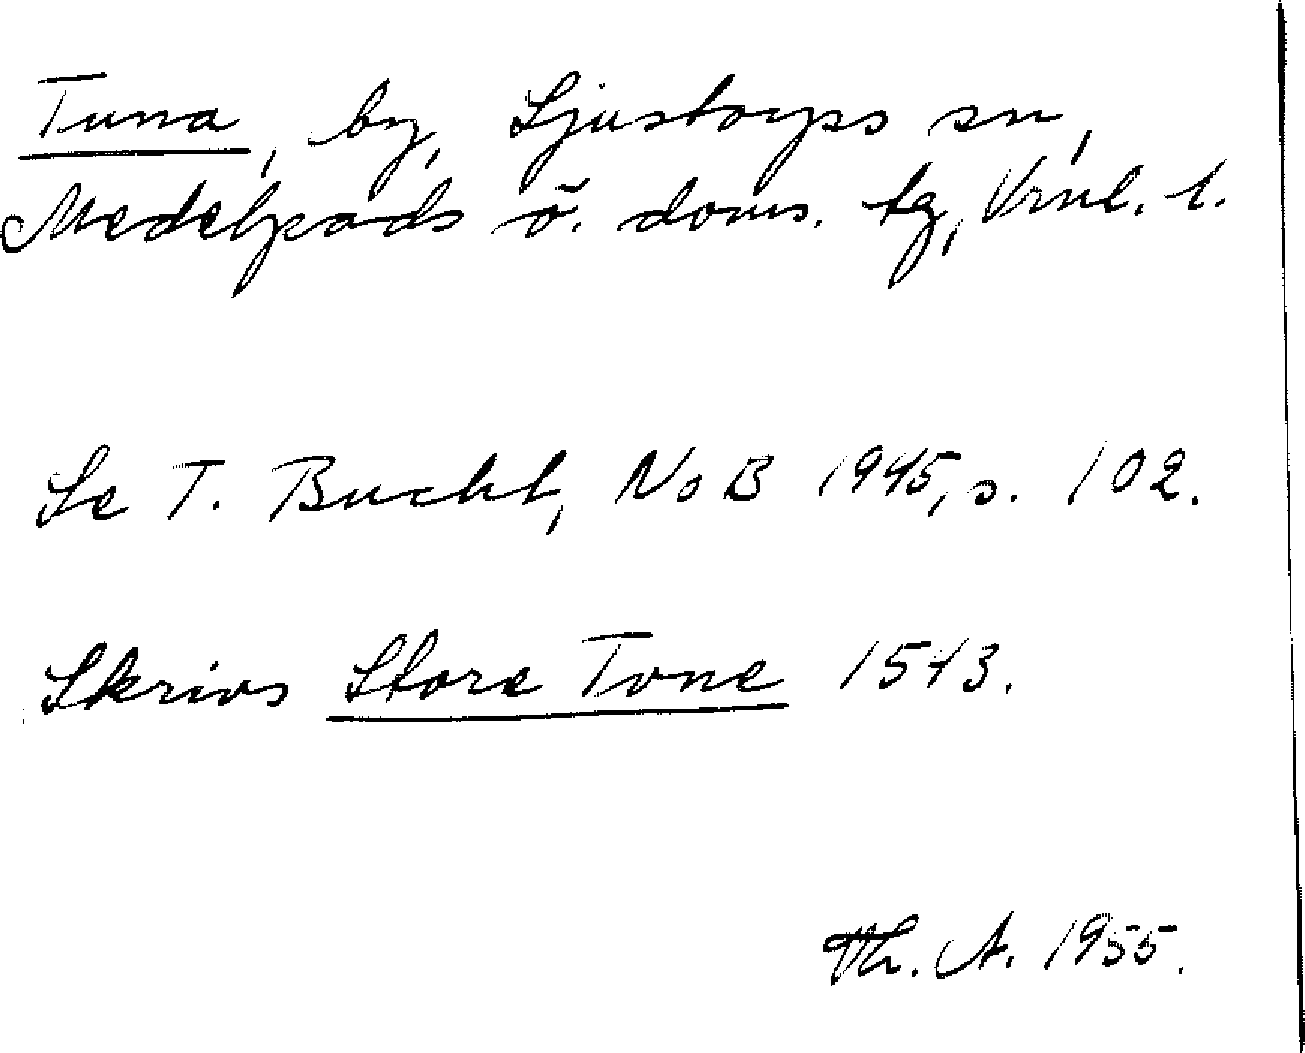 Tuna, by, Ljustorps sn,
Medelpads ö. doms. tg, Vrnl. l.
Se T. Bucht, NoB 1945, s. 102.
Skrivs Store Tone 1543.
Th. A. 1955.